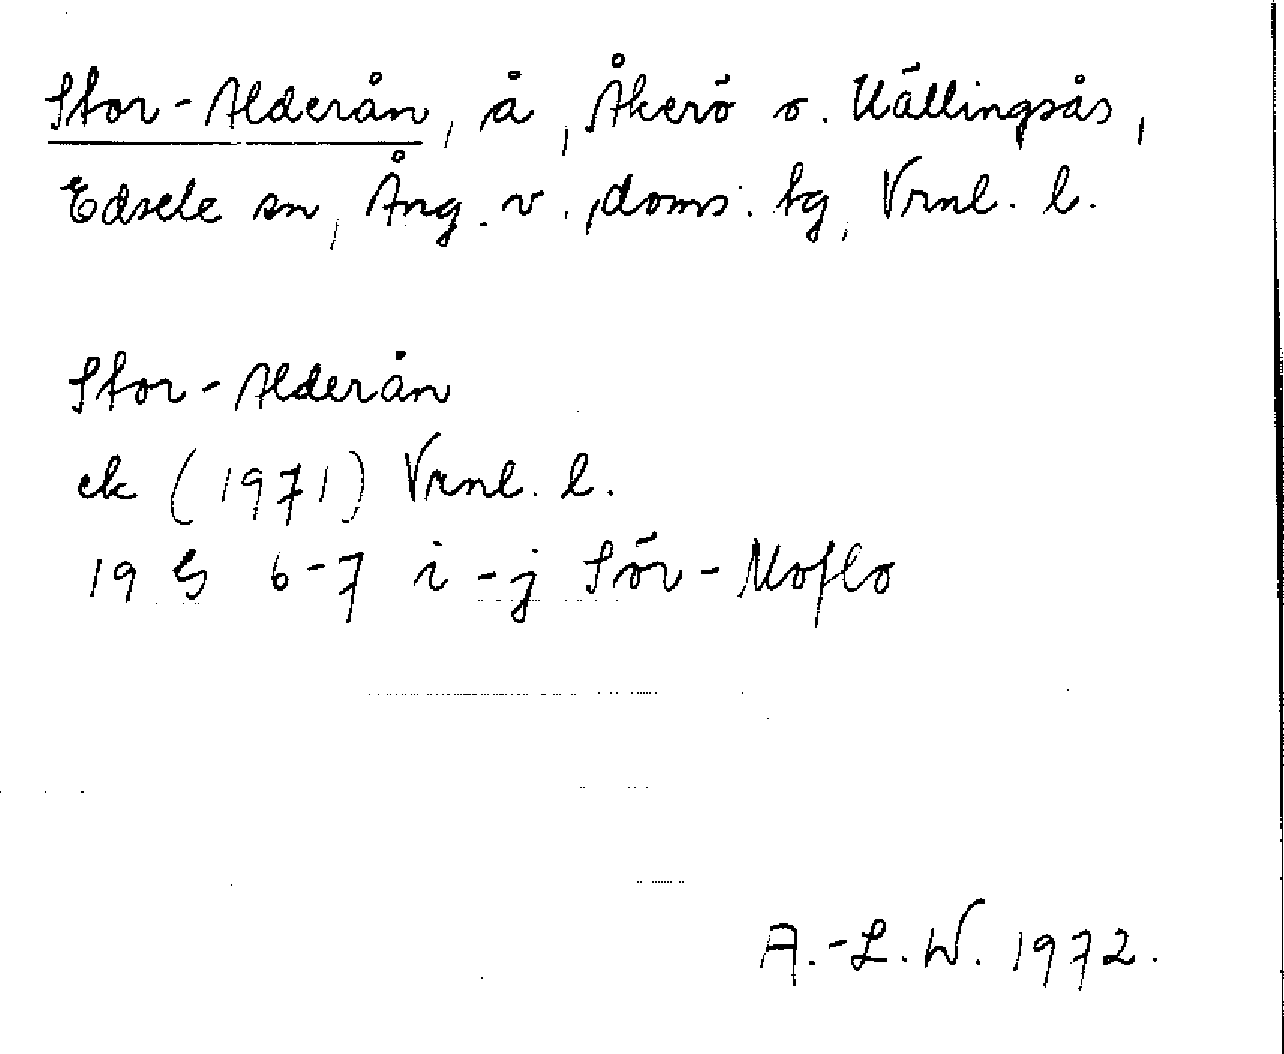 Stor-Alderån, å, Åkerö o. Källingsås,
Edsele sn, Ång. v., doms. tg, Vrnl. l.
Stor-Alderån
ek (1971) Vrnl. l.
19 G 6-7 i-j Sör-Moflo
A.-L. W. 1972.